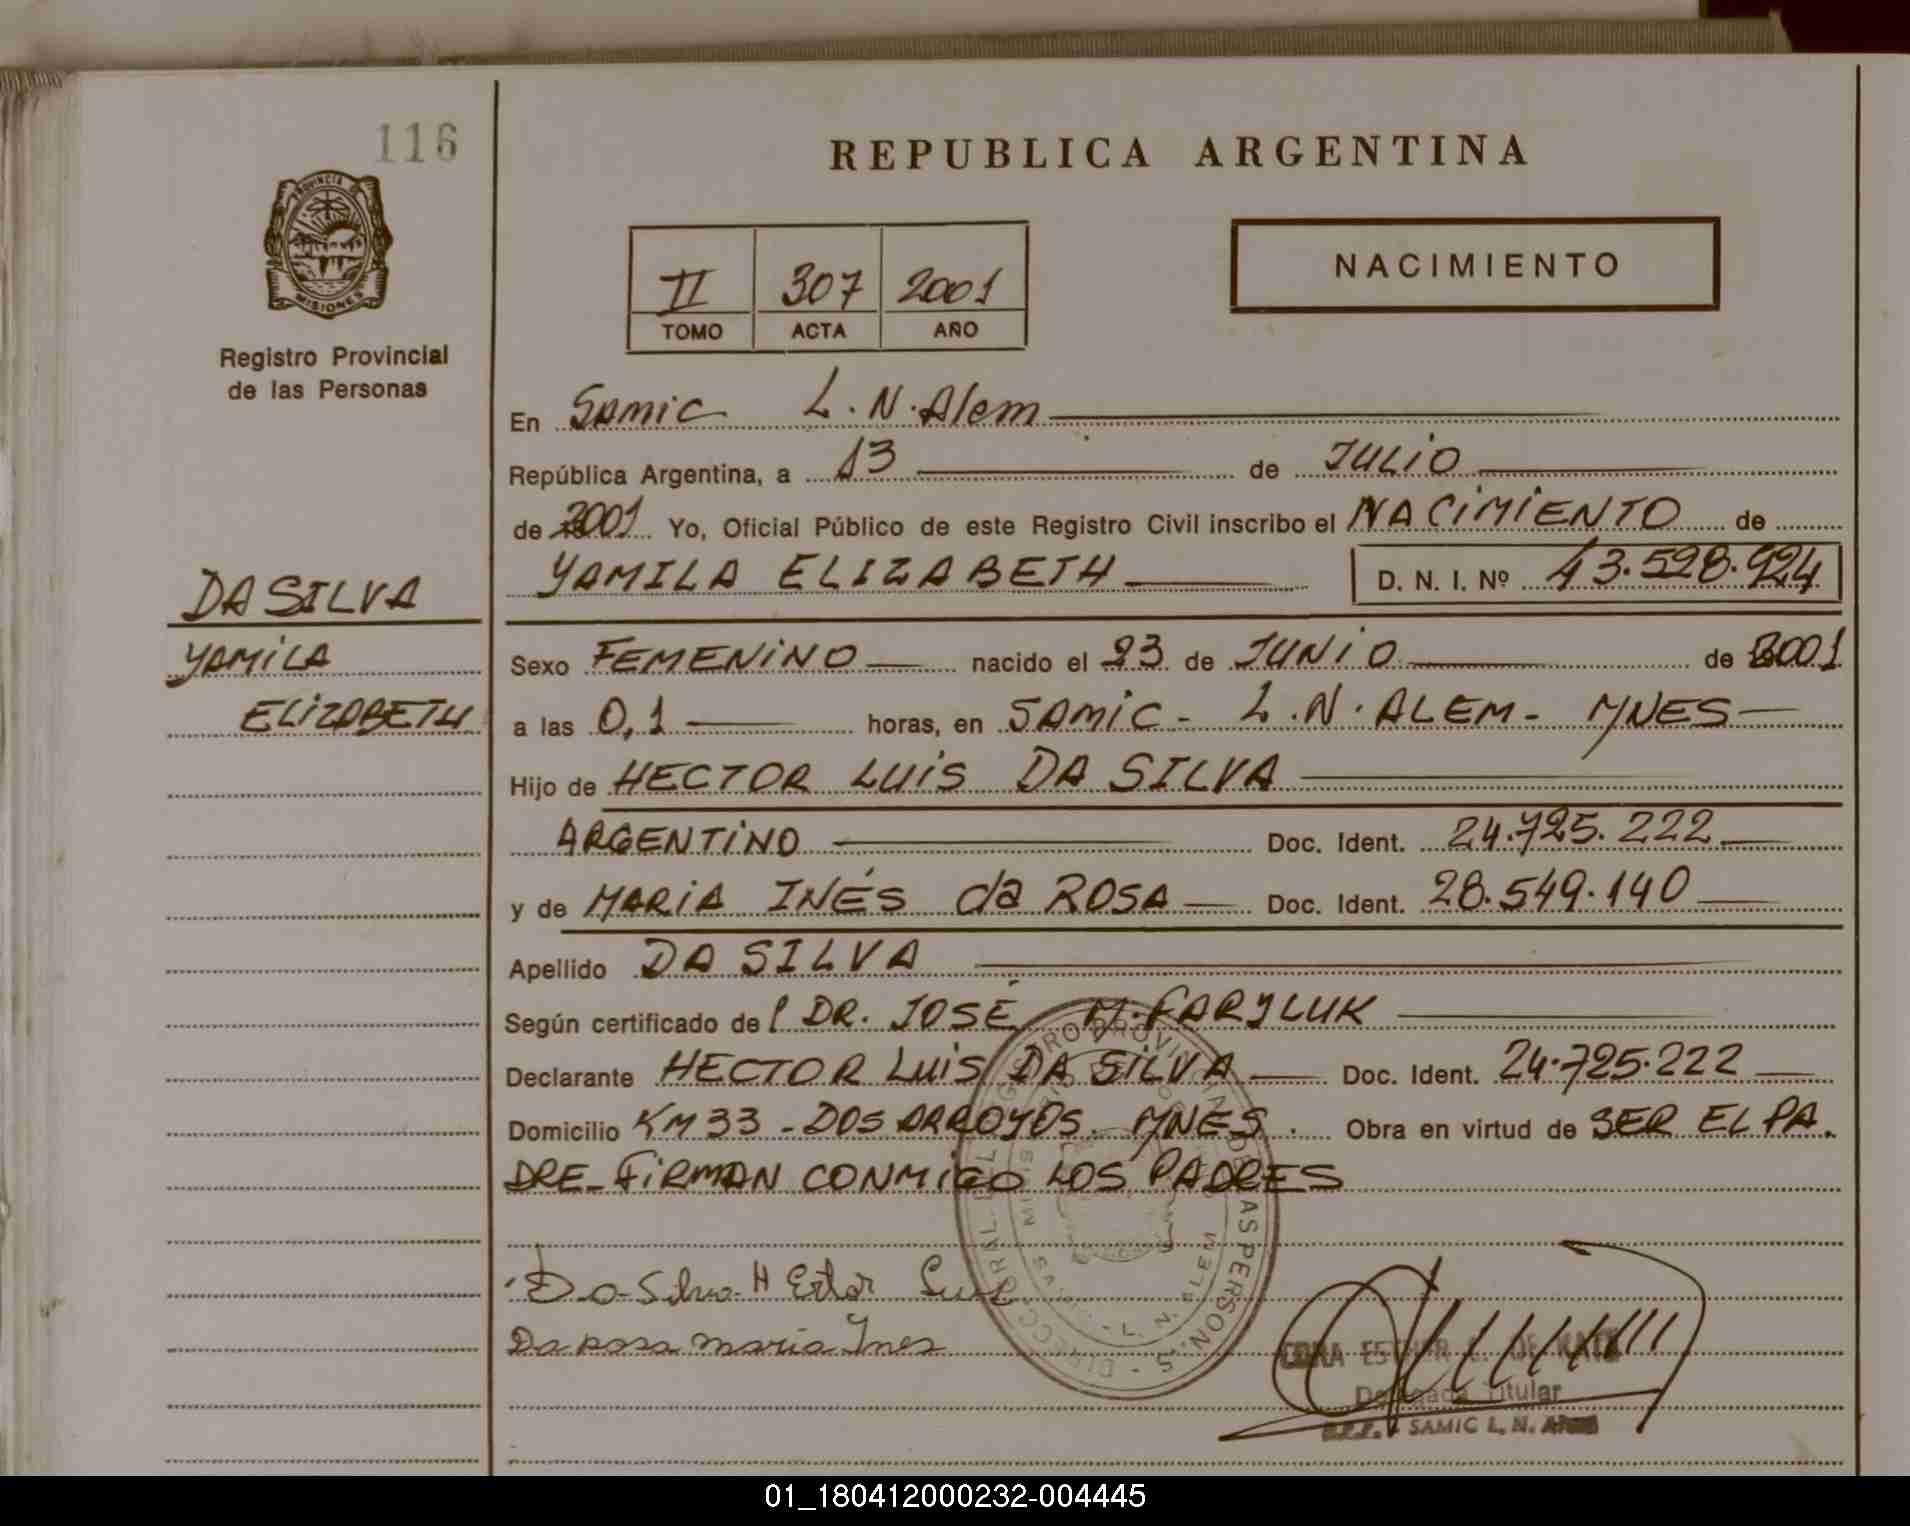 116
REPUBLICA ARGENTINA
PROVINCIA DE
MISIONES
Registro Provincial
de las Personas
II 307 2001
TOMO ACTA AÑO
NACIMIENTO
En Samic L. N. Alem
República Argentina, a 13 de JULIO
de 2001 Yo, Oficial Público de este Registro Civil inscribo el NACIMIENTO de
YAMILA ELIZABETH D. N. I. Nº 43.528.924
DA SILVA
YAMILA
ELIZABETH
Sexo FEMENINO nacido el 23 de JUNIO de 2001
a las 0,1 horas, en SAMIC - L. N. ALEM - MNES
Hijo de HECTOR LUIS DA SILVA
ARGENTINO Doc. Ident. 24.725.222
y de MARIA INÉS da ROSA Doc. Ident. 28.549.140
Apellido DA SILVA
Según certificado del DR. JOSÉ M. FARYLUK
Declarante HECTOR LUIS DA SILVA Doc. Ident. 24.725.222
Domicilio KM 33 - DOS ARROYOS. MNES. Obra en virtud de SER EL PA.
DRE - FIRMAN CONMIGO LOS PADRES
Da Silva Hector Luis
Da rosa maria Ines
Delegada Titular
SAMIC L. N. ALEM
01_180412000232-004445